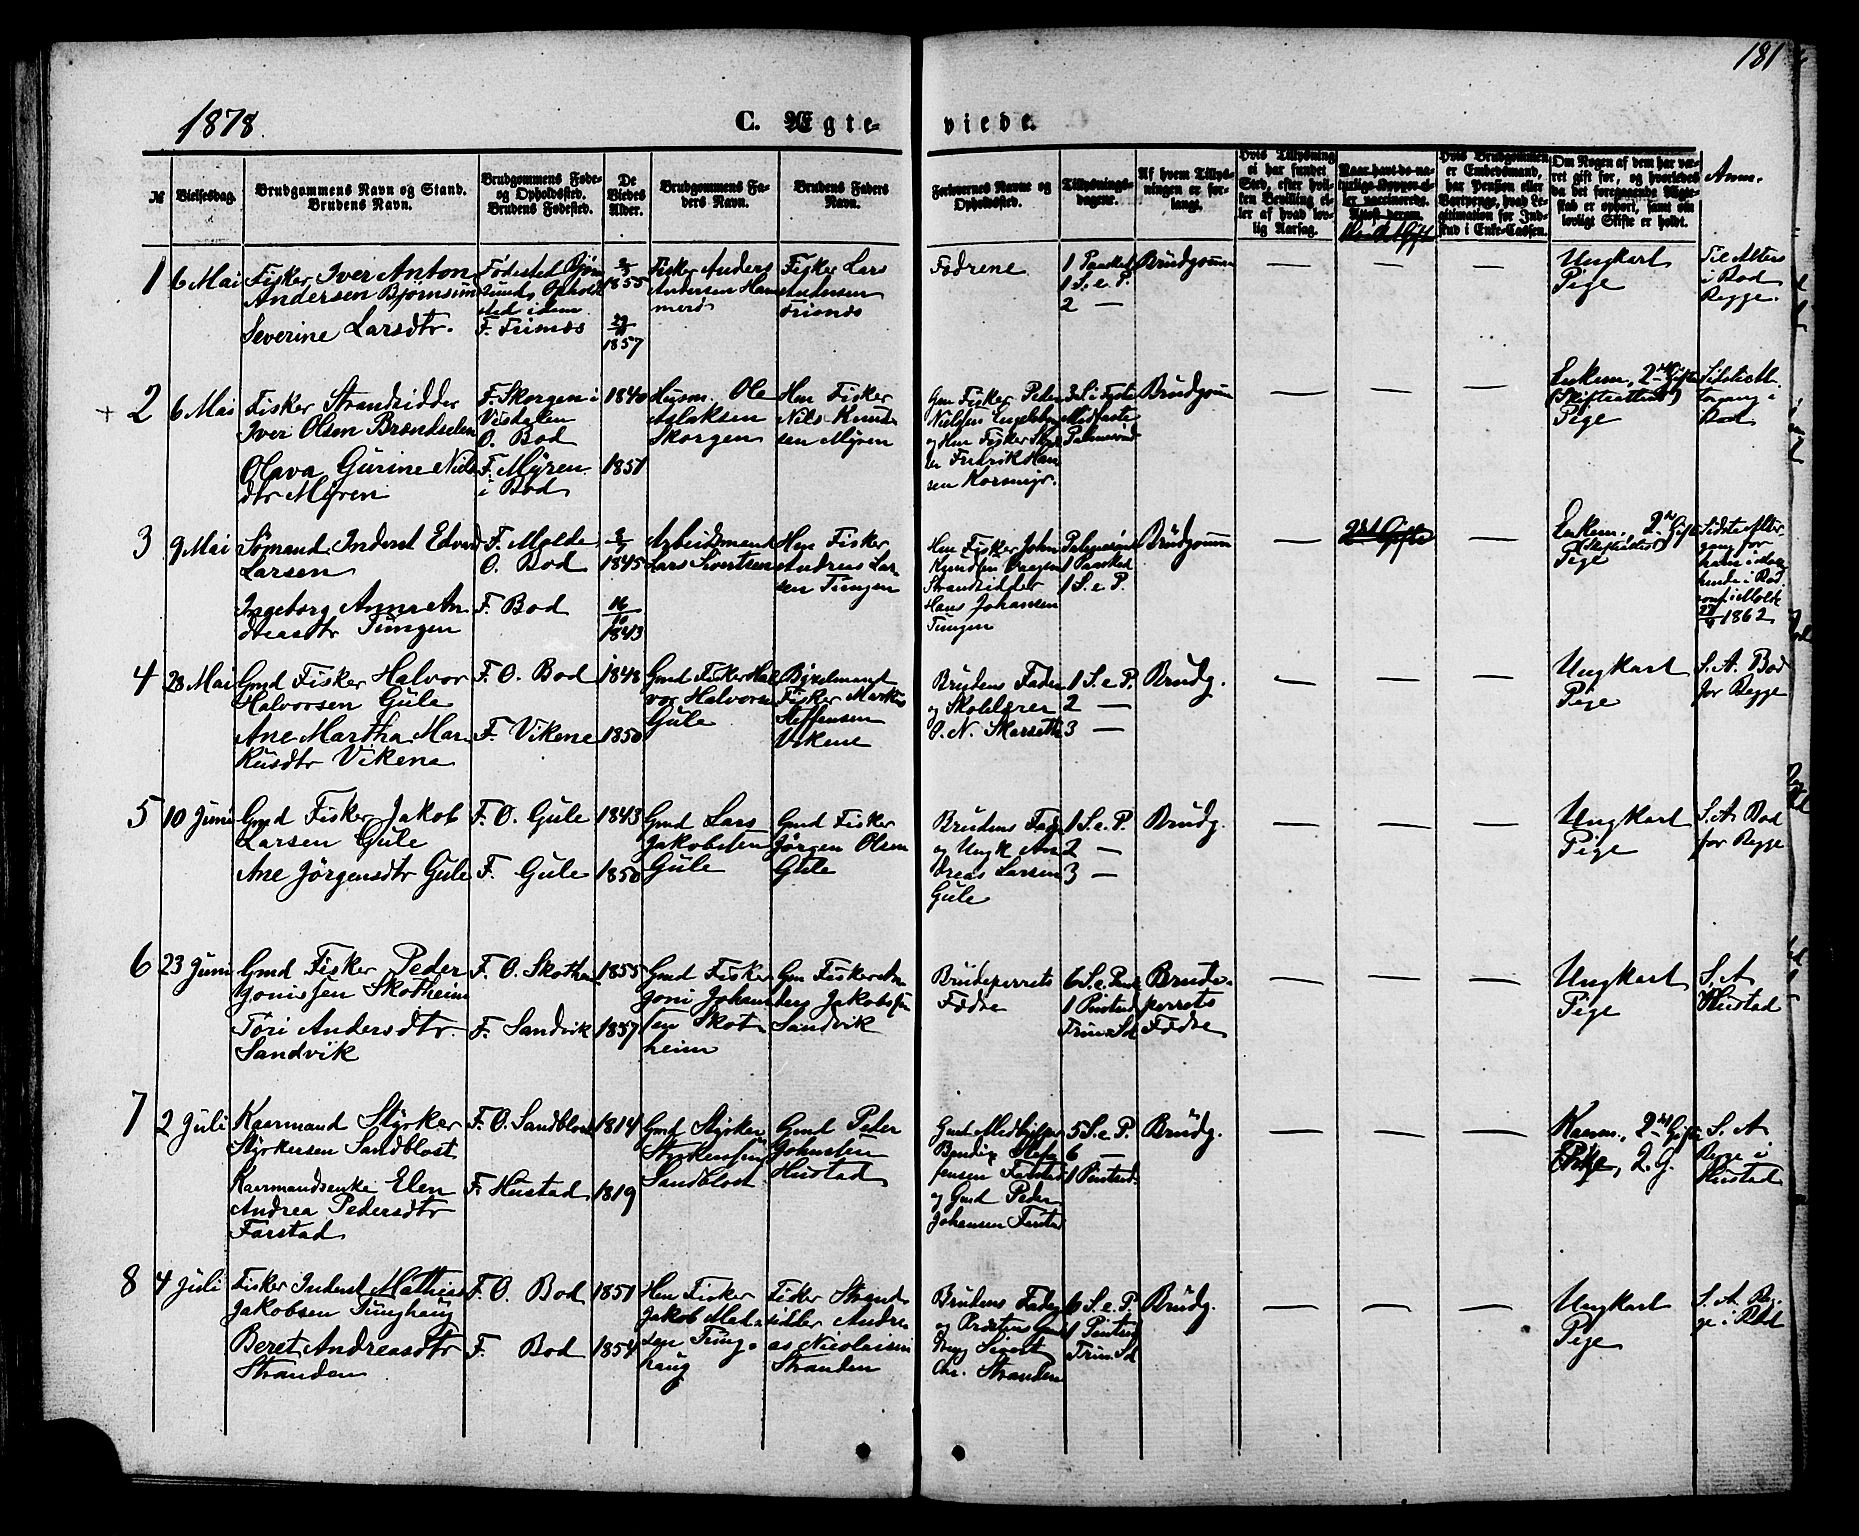 181
1878.
C. Ægte-
viede.
№
Vielsesdag.
Brudgommens Navn og Stand.
Brudens Navn.
Brudgommens Føde-
og Opholdssted.
Brudens Fødested.
De
Viedes
Alder.
Brudgommens Fa-
ders Navn.
Brudens Faders
Navn.
Forlovernes Navne og
Opholdssted.
Tillysnings-
dagene.
Af hvem Tillys-
ningen er for-
langt.
Hvis Tillysning
ei har fundet
Sted, efter hvil-
ken Bevilling el-
ler af hvad lov-
lig Aarsag.
Hvis Brudgommen
er Embedsmand,
har Pension eller
Om Nogen af dem har væ-
ret gift før, og hvorledes
da det foregaaende Ægte-
skab er ophørt, samt om
lovligt Skifte er holdt.
Anm.
1
6 Mai
Fisker Iver Anton
Andersen Bjørnsund
Severine Larsdtr.
Fødested Bjørn
sund, Ophold
sted idem
F. Frisnæs
1855
1857
Fisker Anders
Andersen
Fisker Lars
Andersen
Frisnæs
Fædrene
1 Paaske
1 S. e P.
2 —
Brudgomm
—
—
—
Ungkarl
Pige
Til Alters
i Bod
Begge.
+ 2
6 Mai
Fisker Strandsidder
Iver Olsen Brandselen
Olava Gurine Niels
dtr Myren
F. Skorgen i
O. Bod
F. Myren
i Bod
1840
1851
Husm. Ole
Aslaksen
Skorgen
Hm Fisker
Niels Knud
sen Myren
Gm Fisker Peder
Nielsen
og Hm Fisker
Fredrik Han
sen
Midfaste
Brudgom
—
—
—
Enkem., 2den Gift
(Skifteattest)
Pige
i
Bod
3
9 Mai
Sømand, Inderst Edvard
Larsen
Ingeborg Anna An
dreasdtr Tungen
F. Molde
O. Bod
F. Bod
1845
16/10
1843
Arbeidsmand
Lars Sivertsen
Hm Fisker
Andreas Lar
sen Tungen
Hm Fisker John
Knudsen
Strandsidder
Hans Johansen
Tungen
1 Paaske
1 S. e P.
Brudgomm
—
2den Gifte
—
Enkem., 2den Gift
(Skifteattest)
Pige
Sidste Alter
gang for
i Bod
1862
4
28 Mai
Gmd Fisker Halvor
Halvorsen Gule
Ane Martha Mar
kusdtr Vikene
F. O. Bod
F. Vikene
1848
1850
Gmd Fisker Hal
vor Halvorsen
Gule
Fisker Markus
Steffensen
Vikene
Brudens Fader
og Skolelærer
O. N. Skarseth
1 S. e P.
2 —
3 —
Brudg.
—
—
—
Ungkarl
Pige
S. A. Bod
for Begge
5
10 Juni
Gmd Fisker Jakob
Larsen Gule
Ane Jørgensdtr Gule
F. O. Gule
F. Gule
1843
1850
Gmd Lars
Jakobsen
Gule
Gmd Fisker
Jørgen Olsen
Gule
Brudens Fader
og Ungk An
dreas Larsen
Gule
1 S. e P.
2 —
3 —
Brudg.
—
—
—
Ungkarl
Pige
S. A. Bod
for Begge
6
23 Juni
Gmd Fisker Peder
Jonissen Skotheim
Tøri Andersdtr
Sandvik
F. O. Skothm
F. Sandvik
1855
1857
Gmd Fisker
Joni Johans
sen Skot
heim
Gm Fisker An
ders Jakobsen
Sandvik
Brudeparrets
Fædre
6 S. e Paask
1 Pintsed
Trin. Sd
Brude-
parrets
Fædre
—
—
—
Ungkarl
Pige
S. A
Hustad
7
2 Juli
Kaarmand Styrker
Styrkersen Sandblost
Kaarmandsenke Elen
Andrea Pedersdtr
Farstad
F. O. Sandblost
F. Hustad
1814
1819
Gmd Styrker
Styrkersen
Sandblost
Gmd Peder
Johnsen
Hustad
Gmd Medhjælper
Bendix Stef
fensen Farstad
og Gmd Peder
Johansen Farstad
5 S. e P.
6 —
1 Pintsed.
Brudg.
—
—
—
2den Gifte
Pige, 2. G.
S. A
Begge i
Hustad
8
4 Juli
Fisker Inderst Mathias
Jakobsen Tunghaug
Beret Andreasdtr
Stranden
F. O. Bod
F. Bod
1851
1854
Hm Fisker
Jakob Mad
sen Tung-
haug
Fisker Strand
sidder Andre
as Nicolaisen
Stranden
Brudens Fader
og
Sivert
Chr. Stranden
6 S. e P.
1 Pintsed
Trin. Sd
Brudg.
—
—
—
Ungkarl
Pige
S. A. Beg-
ge i Bod